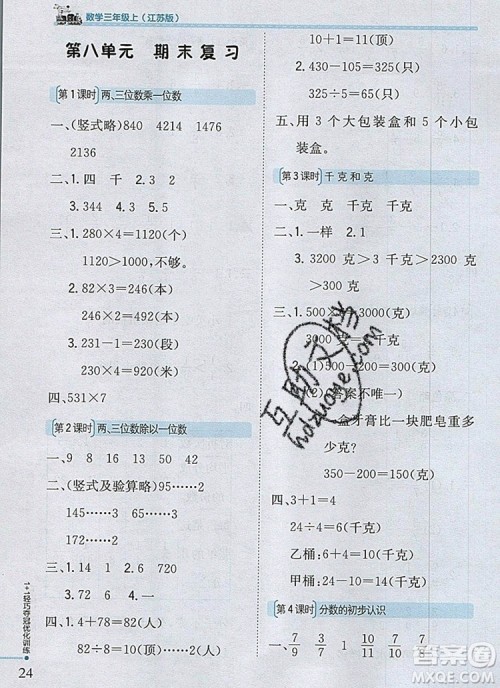 数学三年级上(江苏版)
第八单元 期末复习
第1课时 两、三位数乘一位数
一、(竖式略)840 4214 1476
2136
二、1.四 千 2.3 2
3.344 4.3 5.略
三、1.280×4=1120(个)
1120>1000,不够。
2.82×3=246(本)
246×2=492(本)
3.31-1=30(段)
230×30=6900(米)
四、531×7
第2课时 两、三位数除以一位数
一、9 8 16 13 50 42
二、(竖式及验算略)95……2
155……3 65……2
170……2
三、1.7 2.7 50
3.72 6 4.一
四、1.4+78=82(人)
82÷8=10……2(人)
10+1=11(顶)
2.405-80=325(只)
325÷5=65(只)
五、用3个大包装盒和5个小包
装盒。
第3课时 千克和克
一、克 克 千克 千克 克
二、1.一样 2.1
3.3200克>3千克>2300克
>300克
三、1.500×
=3000(克)
3000克=
千克
2.(1)
=200(克)
(2)(答案不唯一)
一盒牙膏比一块肥皂重多
少克?
350-200=150(克)
四、3+1=4
24÷4=6(千克)
乙桶:6+4=10(千克)
甲桶:24-10=14(千克)
第4课时 分数的初步认识
一、7/9 3/7 1 1/2 4/9 7/8
1+1轻巧夺冠优化训练
24
互助文档
hdzuoye.com
作业帮答案
MXQE.COM